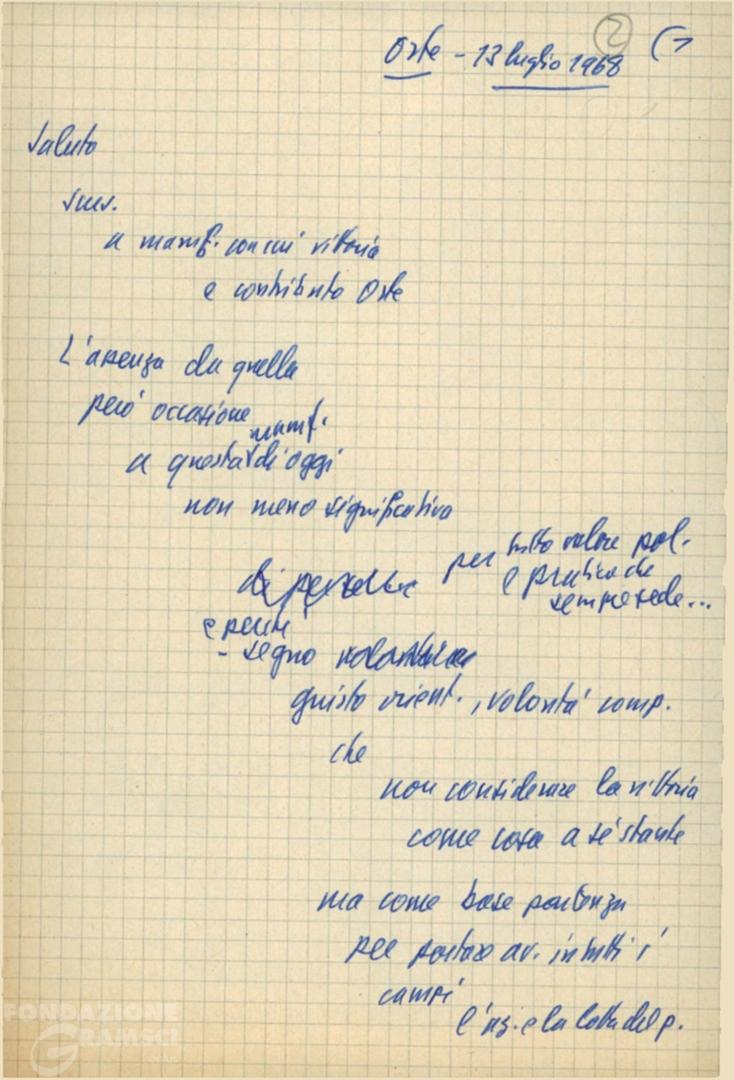 Orte - 13 luglio 1968
2
(1
Saluto
a manif. con cui vittoria
e contributo Orte
L'assenza da quella
però occasione
manif.
a questa di oggi
non meno significativa
per tutto valore pol.
e pratico che
sempre sede...
e perché
- segno
giusto orient., volontà comp.
che
non considerare la vittoria
come cosa a sé stante
ma come base partenza
per portare av. in tutti i
campi
l'az. e la lotta del p.
FONDAZIONE
GRAMSCI